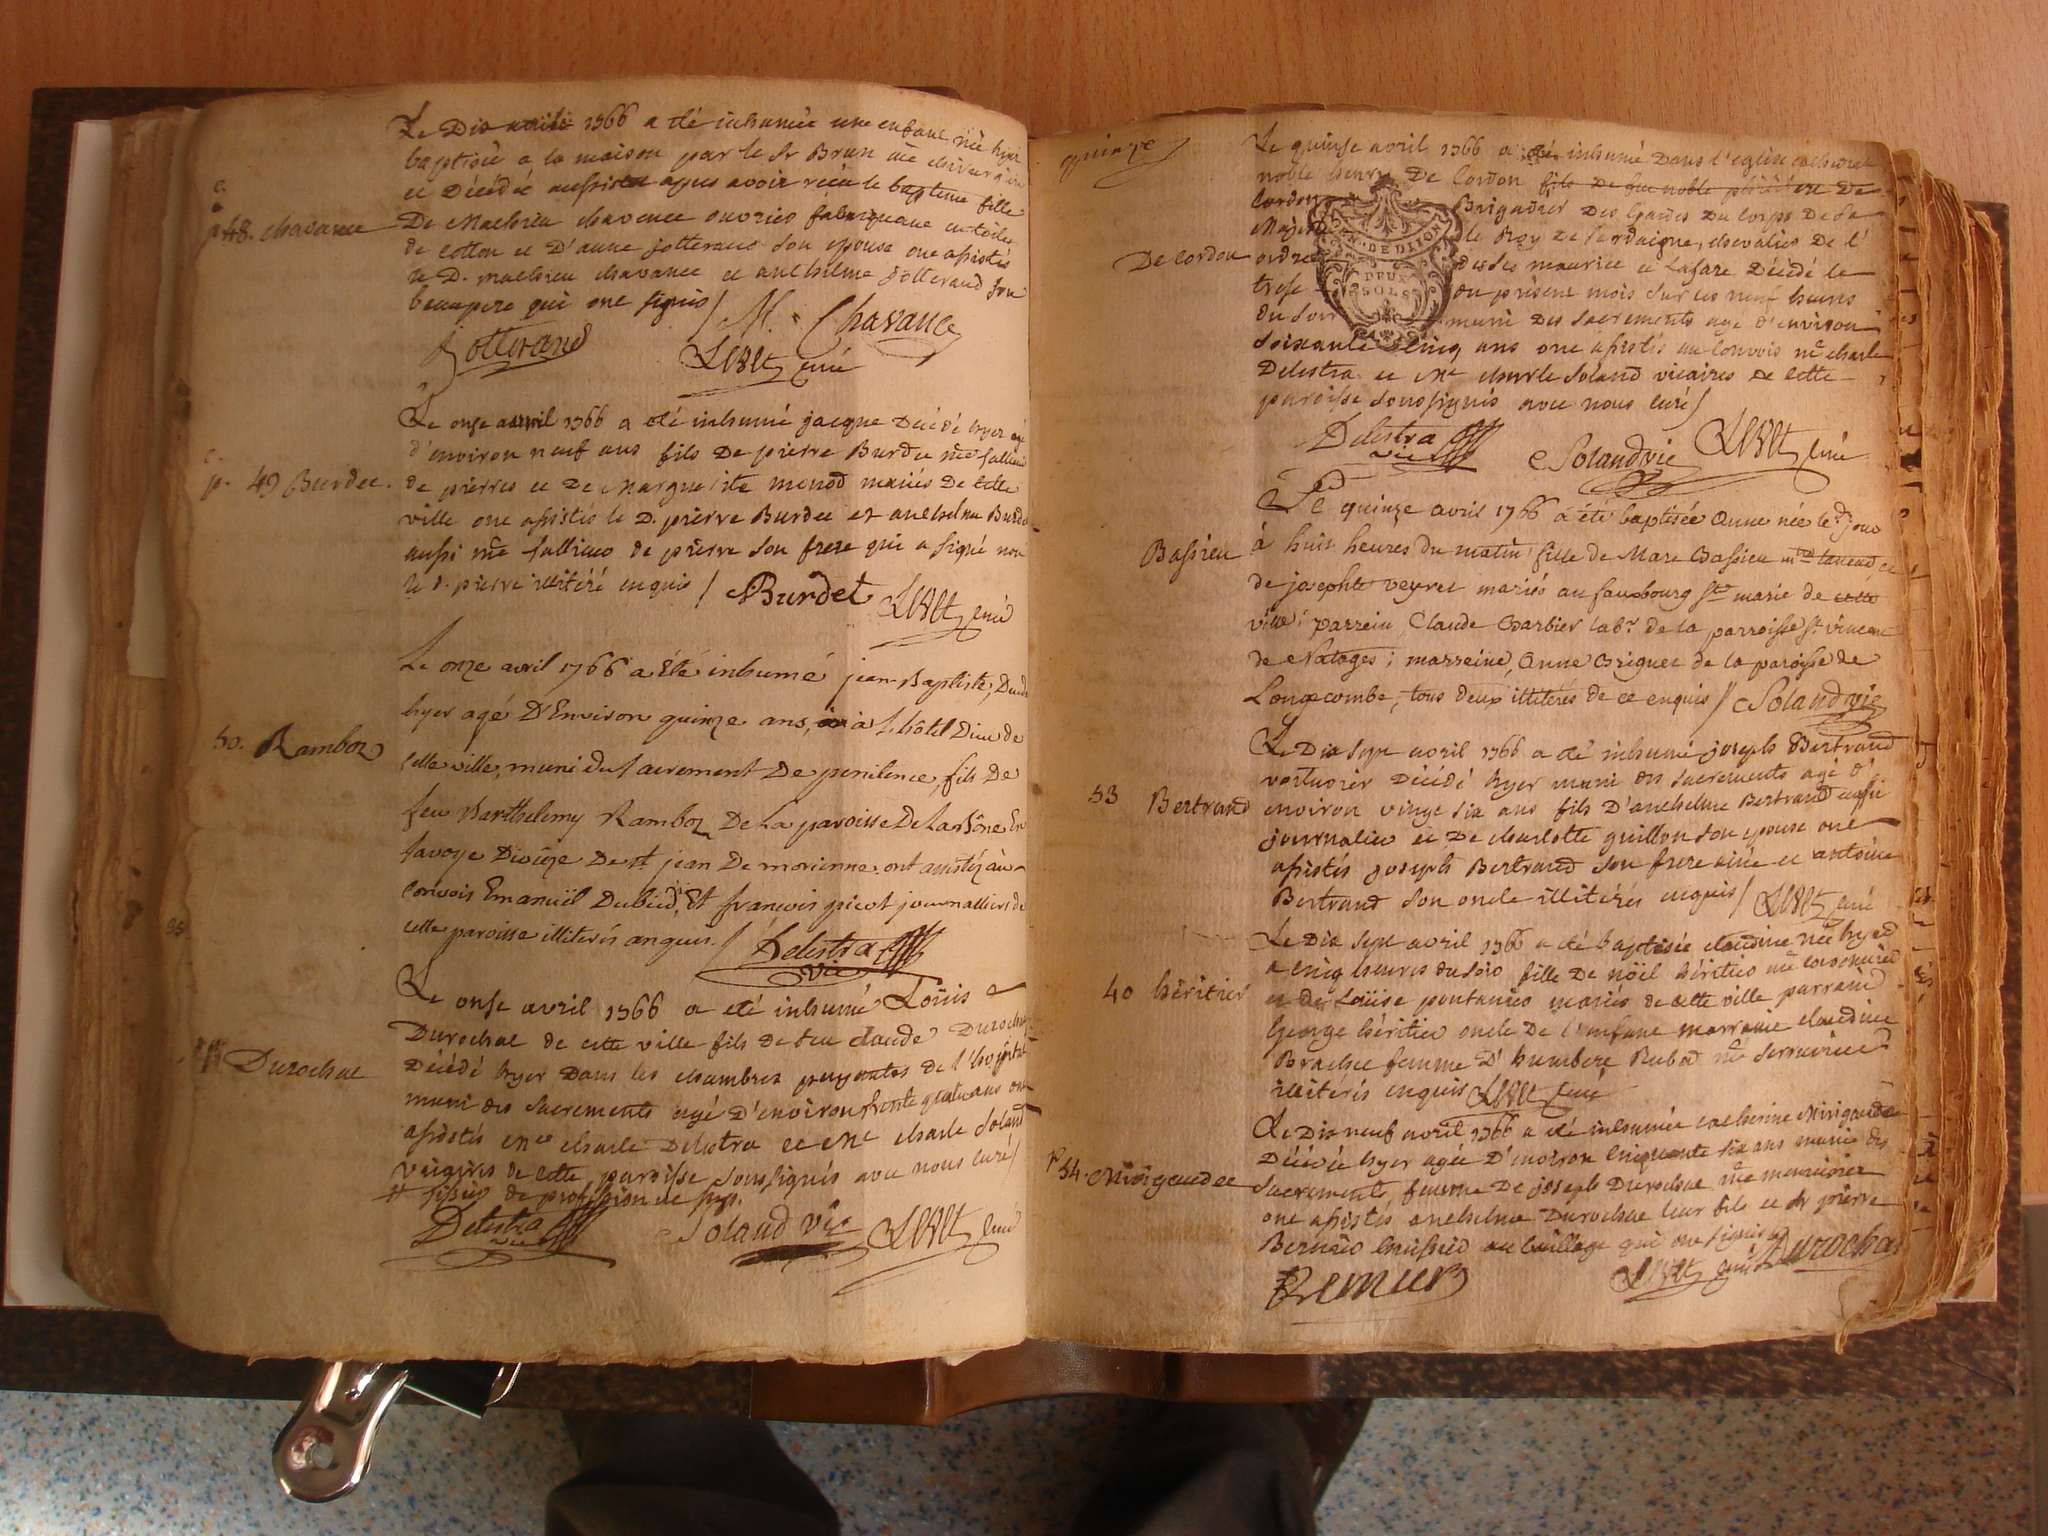 c.
p. 48. chavance
Le Dix avril 1766 a été inhumée une enfant née hyer
baptisée a la maison par le Sr Brun me chirurgien
et Décédée aussitot apres avoir recu le bapteme fille
De Mathieu chavance ouvrier fabriquant en toiles
de cotton et D'anne jotterand son epouse ont assistés
le D. mathieu chavance et anthelme jotterand son
beaupere qui ont signés /
M. Chavance
Jotterand
curé
c.
p. 49 Burdet.
Le onse avril 1766 a été inhumé jacque Décédé hyer agé
d'environ neuf ans fils De pierre Burdet me tallieur
de pierres et De Marguerite monod mariés De cette
ville ont assistés le D. pierre Burdet et anthelme Burdet
aussi me tallieur de pierre son frere qui a signé non
le d. pierre illitéré enquis /
Burdet
curé
50. Ramboz
Le onze avril 1766 a été inhumé jean-Baptiste, Decedé
hyer agé D'Environ quinze ans, à L'hôtel Dieu de
cette ville, muni du sacrement De penitence, fils De
feu Barthelemy Ramboz De La paroisse De En
savoye Diocèze De st jean De morienne. ont assistéz au
convois Emanuël Et francois picot journalliers de
cette paroisse illiterés enquis. /
Delestra
vic
Durochat
Le onse avril 1766 a été inhumé Loüis
Durochat de cette ville fils de feu claude Durochat
Décédé hyer Dans les chambres payantes de l'hopital
muni des sacrements agé D'environ trente quatre ans ont
assistés me charle Delestra et me charle Soland
vicaires de cette paroisse soussignés avec nous curé /
# tissier de profession
Delestra
vic
Soland vic
curé
quinze
De cordon
Le quinse avril 1766 a été inhumé Dans l'eglise cathedral
noble henry De Cordon fils De feu noble De
Cordon Brigadier Des Gardes Du corps De Sa
Majesté le Roy De Sardaigne, chevalier De l'
ordre des sts maurice et Lasare Décédé le
trese du présent mois sur les neuf heures
du soir muni Des sacrements agé d'environ
soixante cinq ans ont assistés au convois me charle
Delestra et me charle Soland vicaires de cette
paroisse soussignés avec nous curé /
Delestra
vic
Soland vic
curé
Bassieu
Le quinze avril 1766 a été baptisée Anne née le d. jour
à huit heures du matin, fille de Marc Bassieu md taneur, et
de josephte veyret mariés au fauxbourg ste marie de cette
ville: parrein, Claude Barbier labr. de la parroisse st. vincent
de Natages; marreine, Anne Briguet de la paroisse de
Longecombe, tous deux illiterés de ce enquis //
Soland vic
53 Bertrand
Le Dix sept avril 1766 a été inhumé joseph Bertrand
Décédé hyer muni des sacrements agé d'
environ vingt six ans fils D'anthelme Bertrand aussi
journalier et De charlotte guillon son epouse ont
assistés joseph Bertrand son frere ainé et antoine
Bertrand son oncle illitérés enquis /
curé
40 héritier
Le Dix sept avril 1766 a été baptisée claudine née hyer
a cinq heures du soir fille De nöel héritier me cordonnier
et de Loüise pontanier mariés de cette ville parrain
George héritier oncle De l'enfant marraine claudine
Brachet femme D'humbert Rubod me serrurier
illitérés enquis
curé
p 54. Mirigeaudet
Le Dix neuf avril 1766 a été inhumée catherine Mirigeaudet
Décédée hyer agée D'environ cinquante six ans munie des
sacrements, femme De joseph Durochat me menuisier
ont assistés anthelme Durochat leur fils et Sr pierre
Bernier huissier au baillage qui ont signés
Durochat
curé
Bernier
DE DIJON
DEUX
SOLS